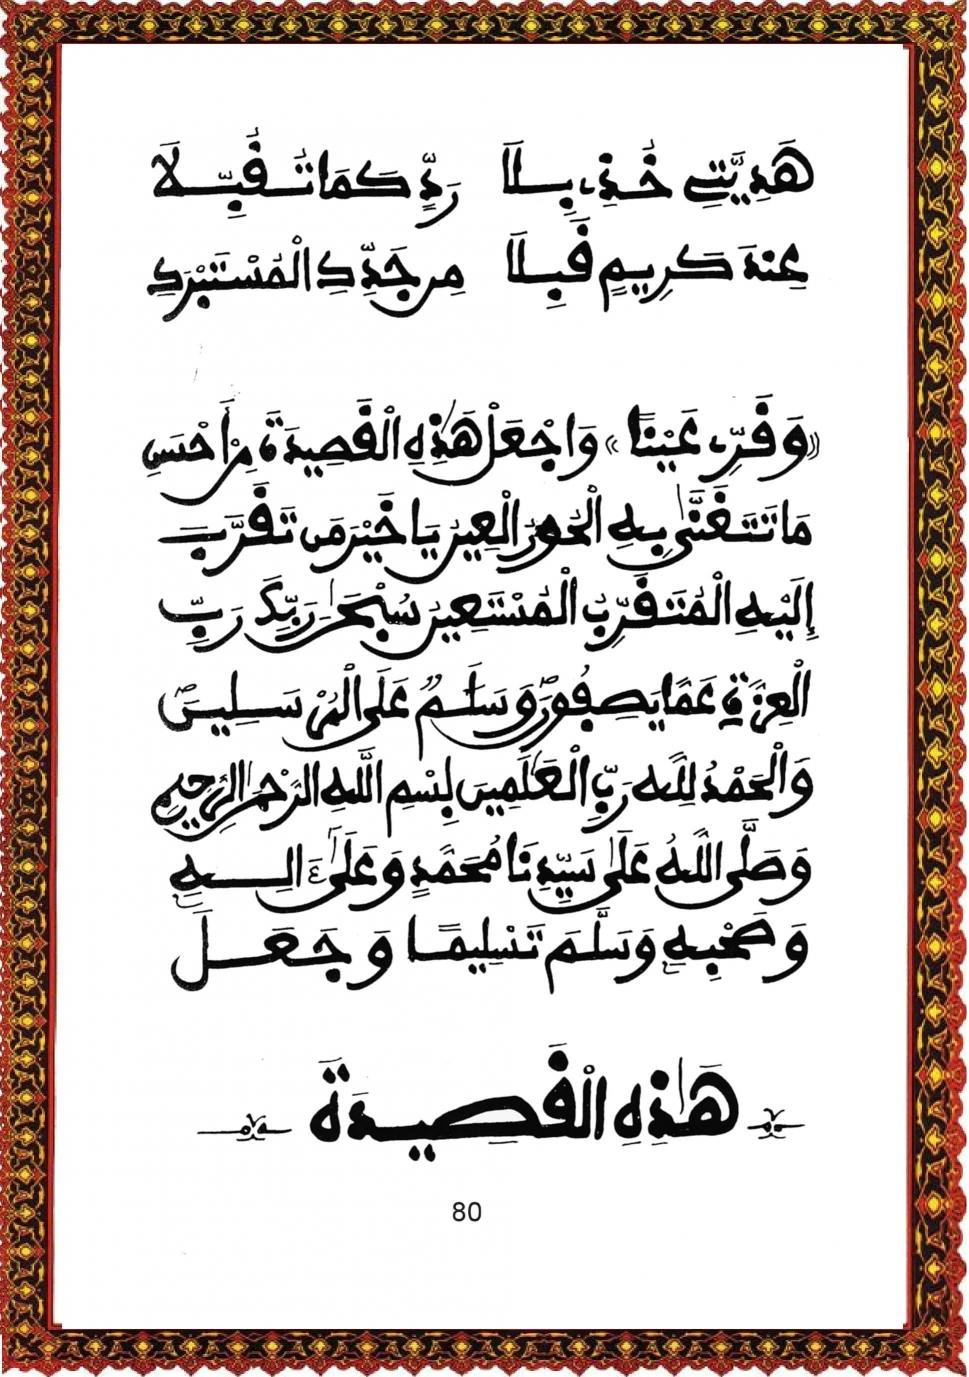 هَدِيَّتِي خُذِي بِلَا رَدٍّ كَمَا تُقُبِّلَا
عِنْدَ كَرِيمٍ قَبِلَا مِن جَدِّكِ الْمُسْتَبْرَدِ
«وَقَرِّي عَيْنًا» وَاجْعَلْ هَٰذِهِ الْقَصِيدَةَ مِنْ أَحْسَنِ
مَا تَتَغَنَّىٰ بِهِ الْحُورُ الْعِينُ يَا خَيْرَ مَن تَقَرَّبَ
إِلَيْهِ الْمُتَقَرِّبُ الْمُسْتَعِينُ سُبْحَٰنَ رَبِّكَ رَبِّ
الْعِزَّةِ عَمَّا يَصِفُونَ وَسَلَٰمٌ عَلَى الْمُرْسَلِينَ
وَالْحَمْدُ لِلَّهِ رَبِّ الْعَٰلَمِينَ بِسْمِ اللَّهِ الرَّحْمَٰنِ الرَّحِيمِ
وَصَلَّى اللَّهُ عَلَىٰ سَيِّدِنَا مُحَمَّدٍ وَعَلَىٰ ءَالِهِ
وَصَحْبِهِ وَسَلَّمَ تَسْلِيمًا وَجَعَلَ
هَٰذِهِ الْقَصِيدَةَ
80